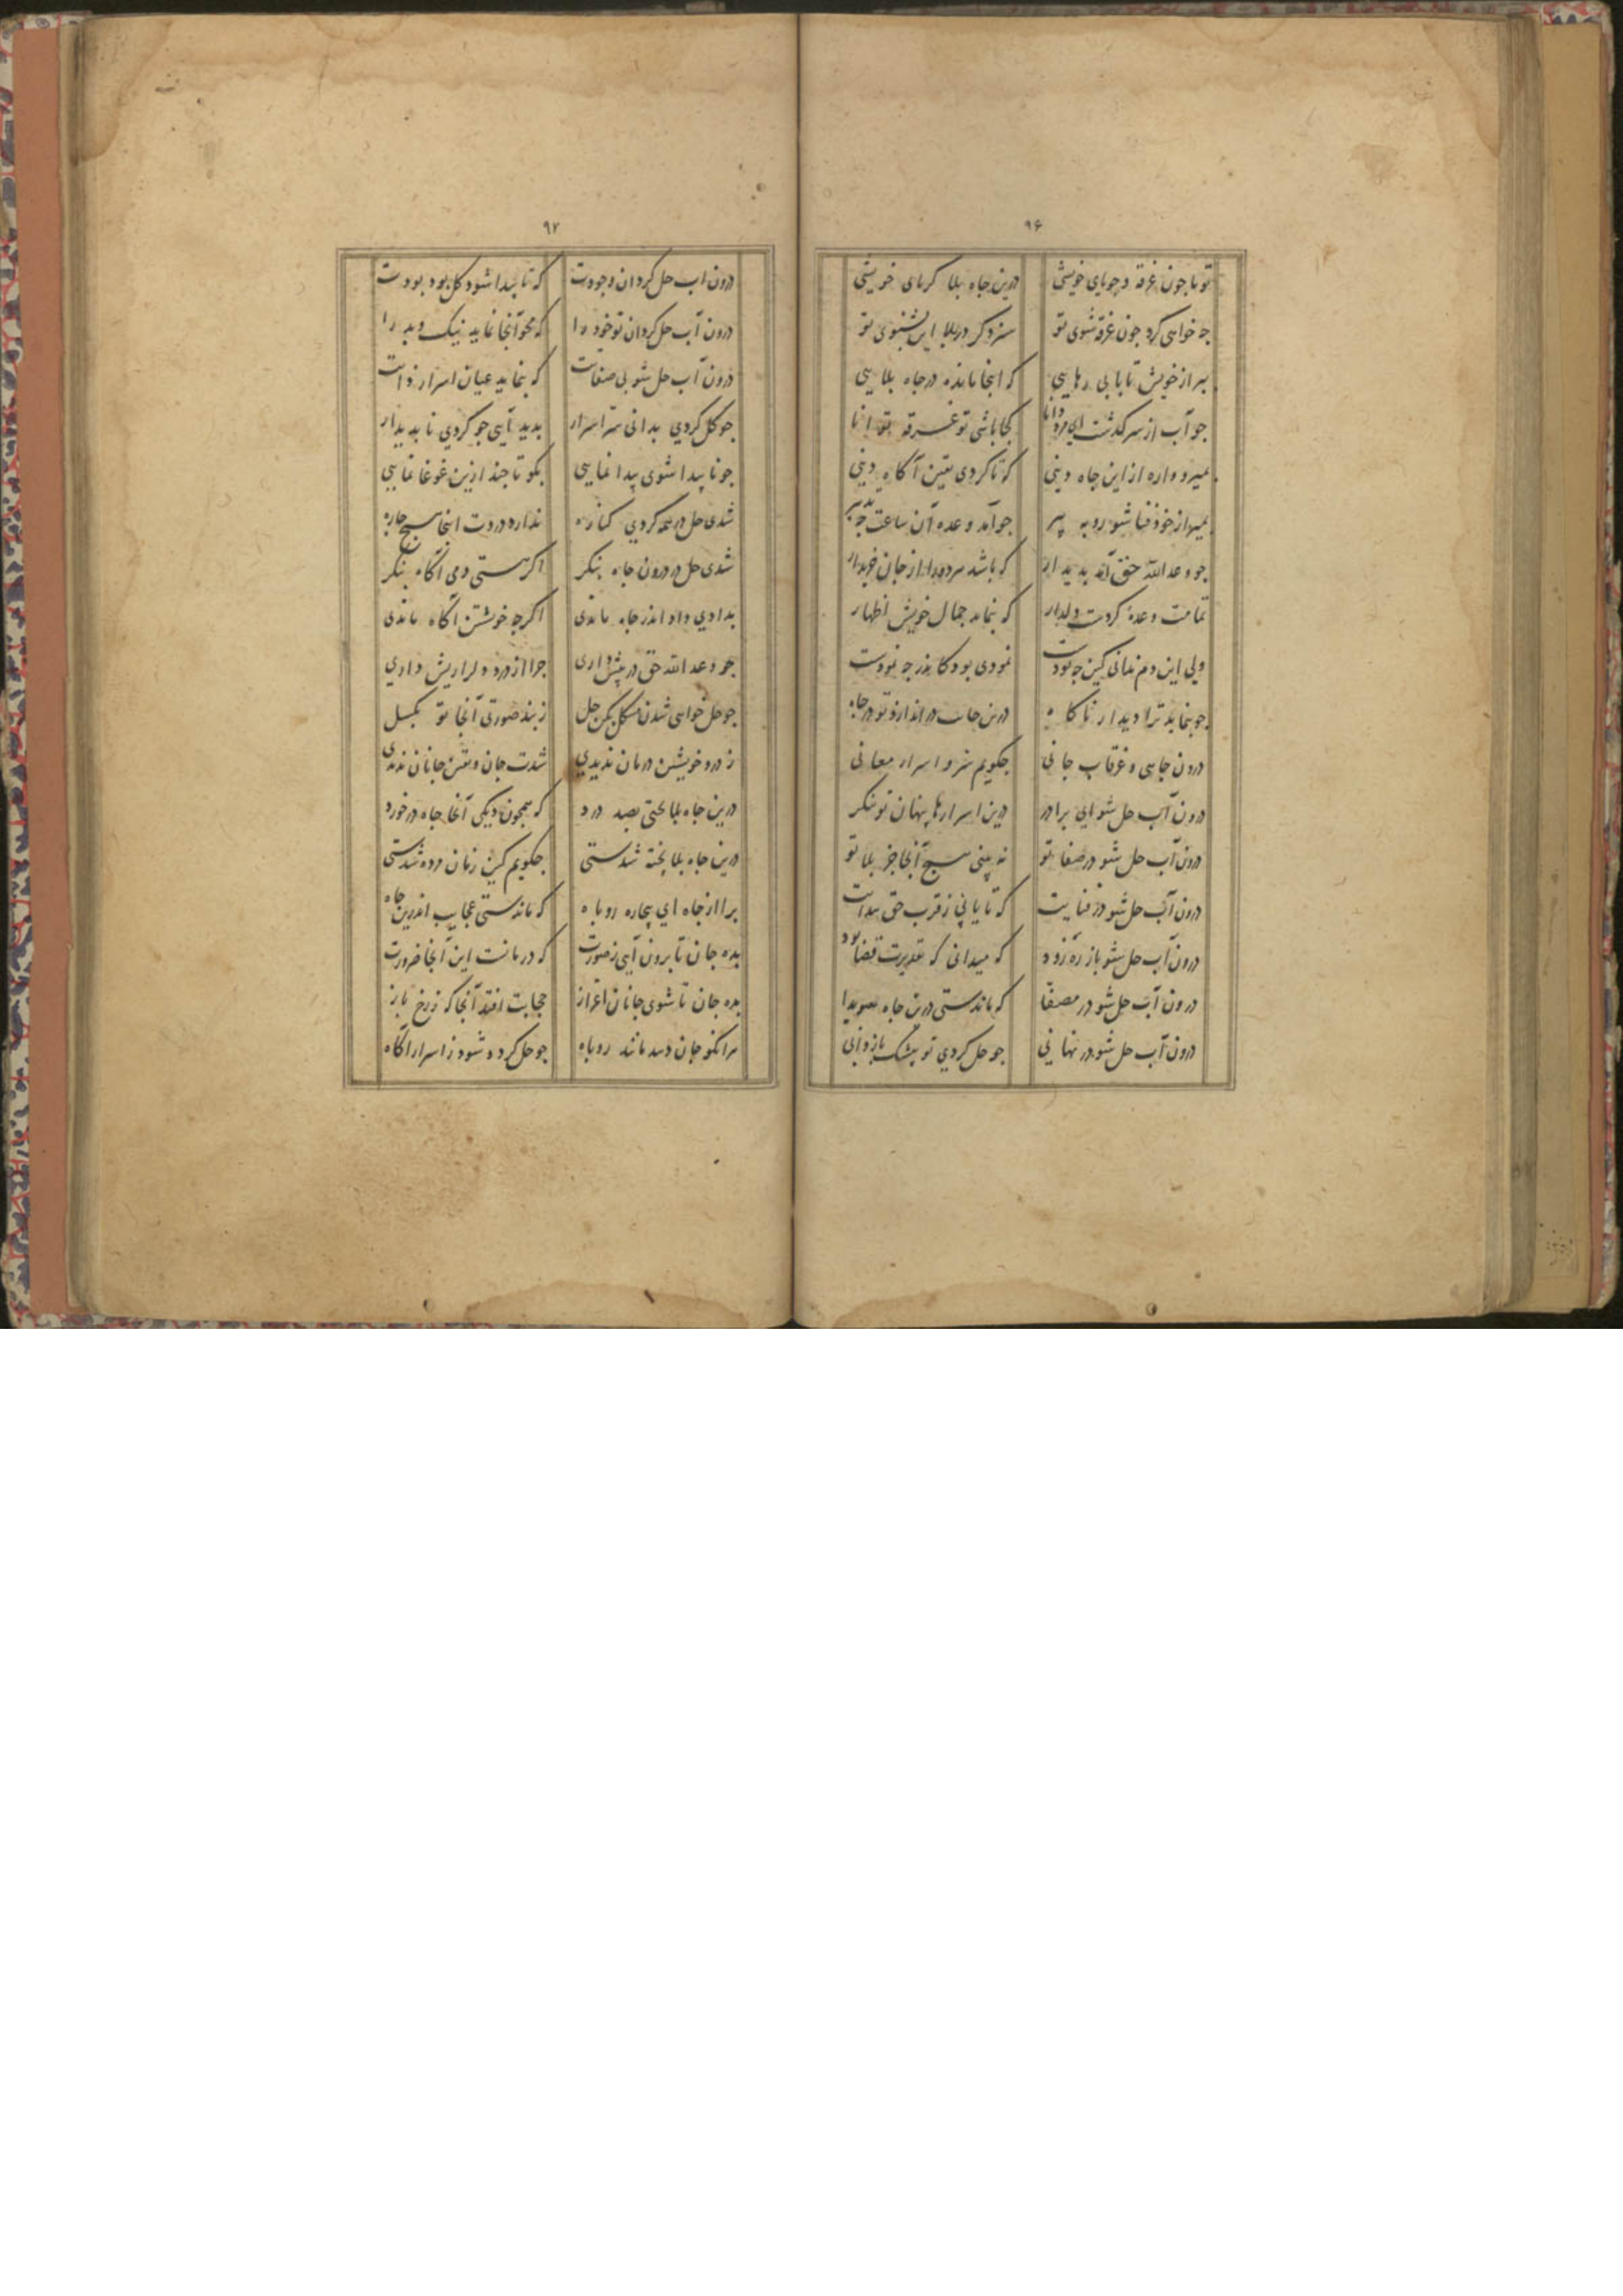 ۹۶
تو تا چون غرقه و جویای خویشی درین جاه بلا خویشی
جه خواهی کرد جون غرقه شوی تو سزد کر در بلا این بشنوی تو
ببر از خویش تا یابی رهایی که اینجا مانده در جاه بلایی
جو آب از سر کذشت ای مرد دانا کجا باشی تو غرقه تو انا
بمیر و واره از این جاه دینی که تا کردی یقین آکاه دینی
بمیر از خود فنا شو روبه پیر جو آمد وعده آن ساعت جه تدبیر
جو وعد الله حق آید بدیدار که باشد از جان خریدار
تمامت وعدهٔ کردت دلدار که بنماید جمال خویش اظهار
ولی این دم ندانی کین جه بودت نمودی بود کاندر جه نمودت
جو بنماید ترا دیدار ناکاه درین جاهت در اندازد تو در جاه
درون جاهی و غرقاب جانی جکویم سر و اسرار معانی
درون آب حل شو ای برادر درین اسرارها پنهان تو بنکر
درون آب حل شو در صفا تو نه بینی هیج آنجا جز بلا تو
درون آب حل شو در فنایت که تا یابی ز قرب حق
درون آب حل شو باز ره زود که میدانی که تقدیرت قضا بود
درون آب حل شو در مصفا که ماندستی درین جاه
درون آب حل شو در نهانی جو حل کردی تو بیشک باز دانی
۹۷
درون آب حل کردان وجودت که تا پیدا شود کل بود بودت
درون آب حل کردان تو خود را که محو آنجا نماید نیک و بد را
درون آب حل شو بی صفاتت که بنماید عیان اسرار ذاتت
جو کل کردی بدانی سر اسرار بدید آیی جو کردی نابدیدار
جو ناپیدا شوی پیدا نمایی بکو تا جند ازین غوغا نمایی
شدی حل در همه کردی کناره ندارد دردت اینجا هیج جاره
شدی حل در درون جاه بنکر اکر هستی دمی آکاه بنکر
بدادی داد اندر جاه ماندی اکرجه خویشتن آکاه ماندی
جو وعد الله حق در پیش داری جرا از درد دل را ریش داری
جو حل خواهی شدن مشکل بکن حل ز بند صورتی آنجا تو بکسل
ز درد خویشتن درمان ندیدی شدت جان و یقین جانان ندیدی
درین جاه بلا بختی بصد درد که همجون دیکی آنجا جاه در خورد
درین جاه بلا بخته شدستی جکویم کین زمان مرده شدستی
برا از جاه ای بیچاره روباه که ماندستی عجایب اندرین جاه
بده جان تا برون آیی ز صورت که درمانست این آنجا ضرورت
بده جان تا شوی جانان حجابت افتد آنجا که ز رخ باز
هر انکو جان دهد مانند روباه جو حل کرده شود ز اسرار آکاه